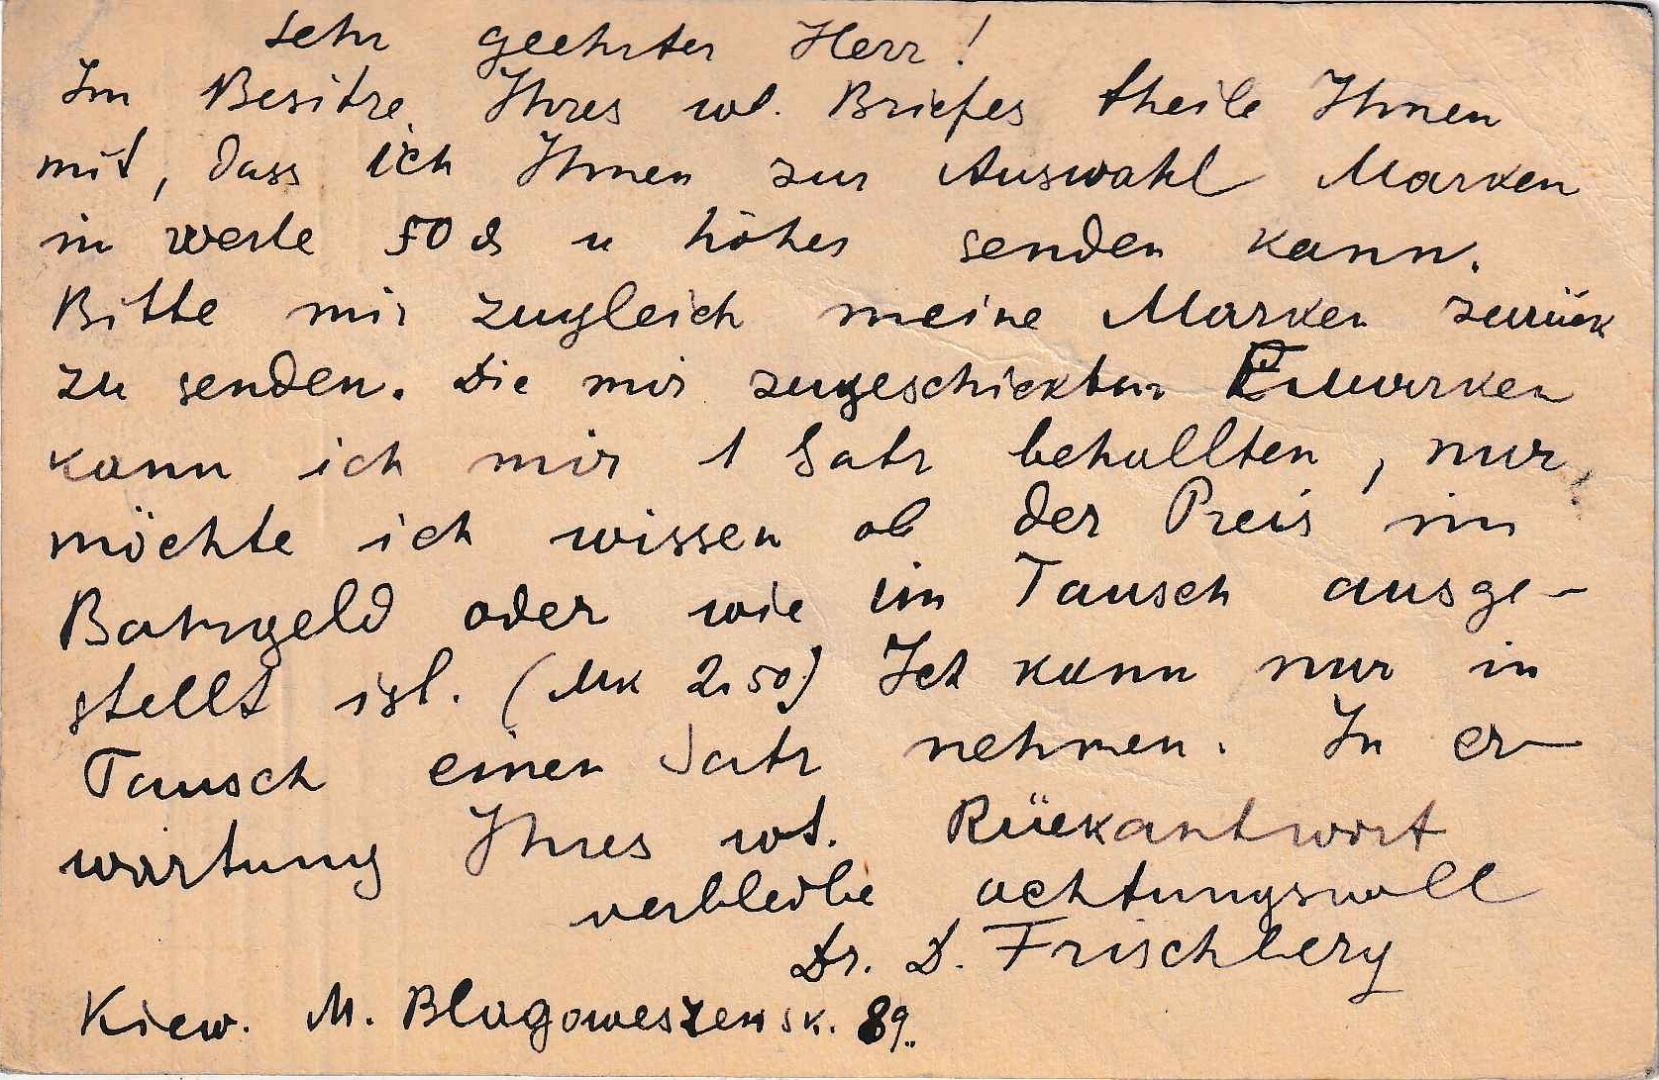 Sehr geehrter Herr!
Im Besitze Ihres wt. Briefes theile Ihnen
mit, dass ich Ihnen zur Auswahl Marken
in werte 50 u höher senden kann.
Bitte mir zugleich meine Marken zurück
zu senden. Die mir zugeschickten
kann ich mir 1 Satz behallten, nur
möchte ich wissen ob der Preis im
Bahrgeld oder wie im Tausch ausge-
stellt ist. (Mk 2,50) Ich kann nur in
Tausch einen Satz nehmen. In er-
wartung Ihres wt. Rückantwort
verbleibe achtungsvoll
Dr. D. Frischberg
Kiew. M. Blagoweszensk. 89.